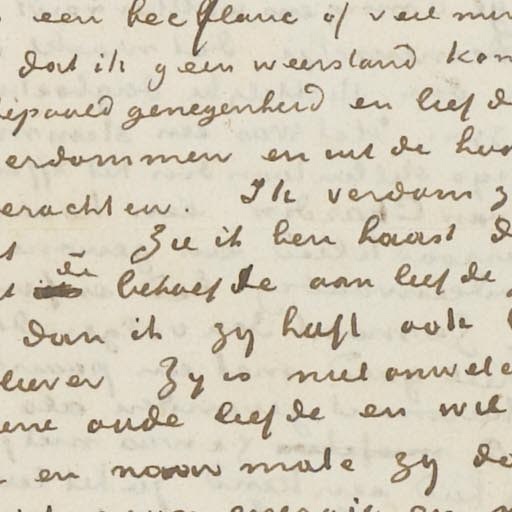 een heeft lauc of veel min
dat ik geen weerstand kon
bepaald genegenheid en liefd
erdommen en uit de hu
erachten. Ik verdom z
Zie ik ben haast d
die behoefde aan liefde
dan ik zy heeft ook
liever Zy is niet onwel
ene oude liefde en wil
en noem mate zy do